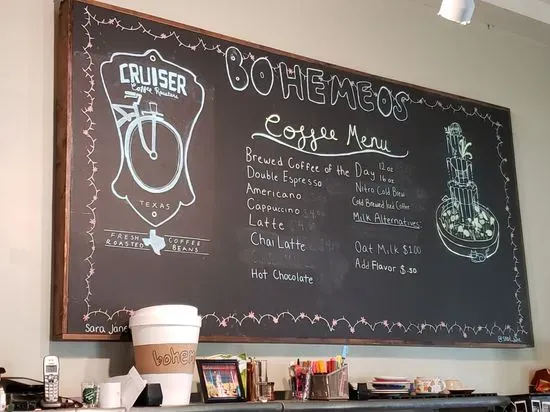 CRUISER
Coffee Roasters
TEXAS
FRESH ROASTED
COFFEE BEANS
BOHEMEOS
Coffee Menu
Brewed Coffee of the Day 12 oz
16 oz
Double Espresso
Americano
Cappuccino
Latte
Chai Latte
Hot Chocolate
Nitro Cold Brew
Cold Brewed Iced Coffee
Milk Alternatives:
Oat Milk $1.00
Add Flavor $.50
Sara Jane
bohem